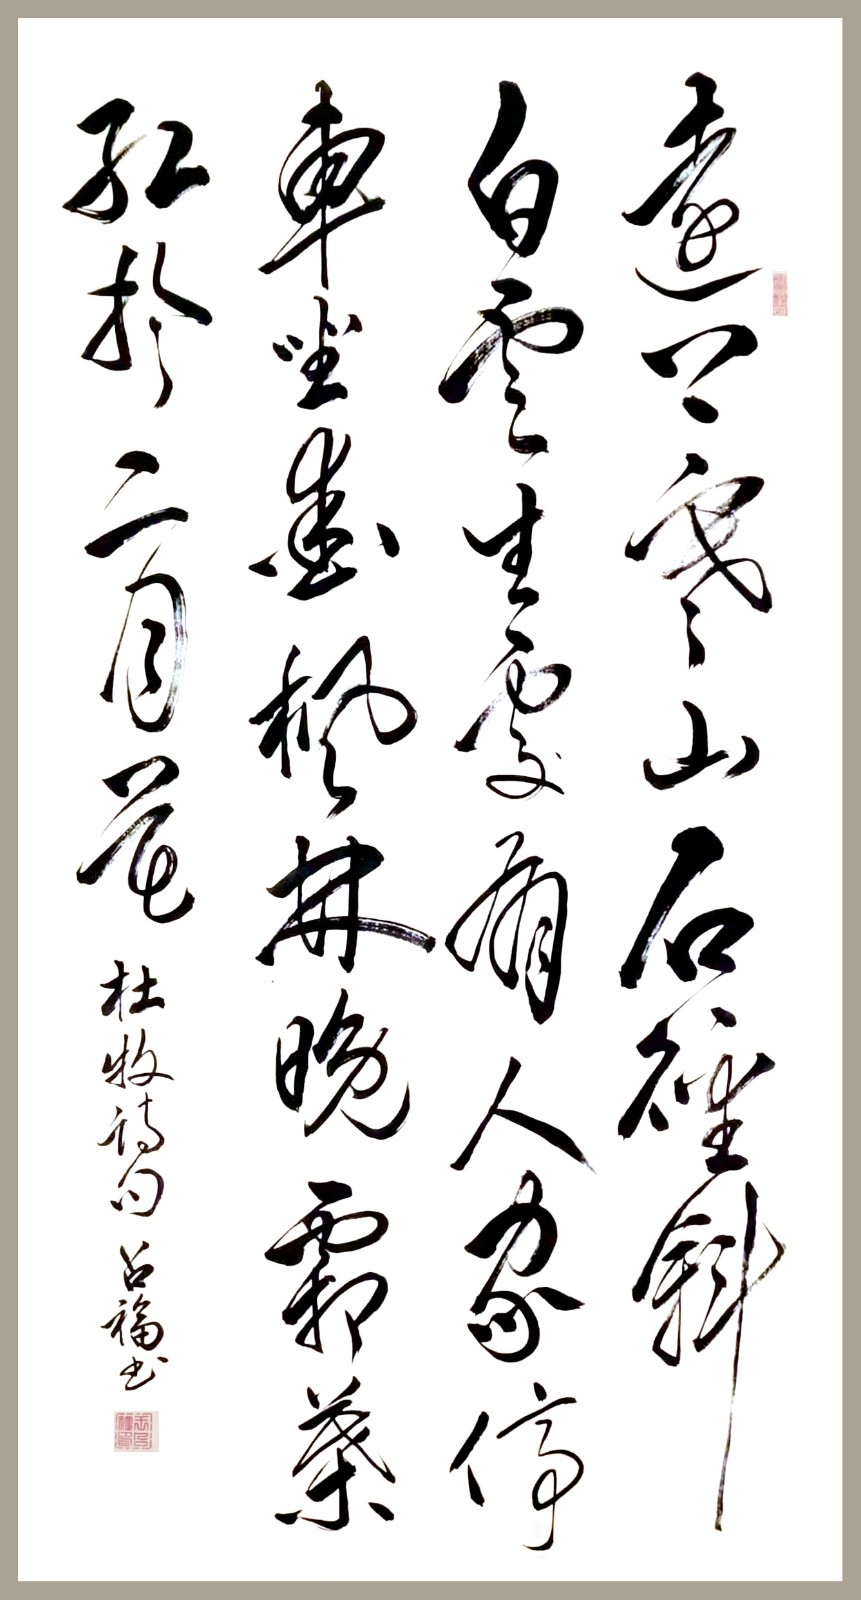 遠上寒山石徑斜
白雲生處有人家停
車坐愛楓林晚霜葉
紅於二月花 杜牧詩句 占福书